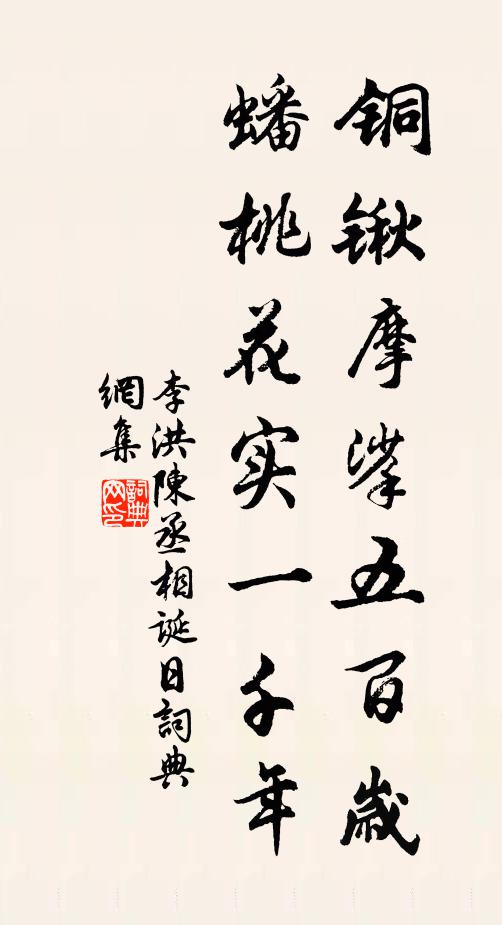 铜锹摩挲五百歲
蟠桃花实一千年
李洪陳丞相誕日詞典
網集
詞典
网印